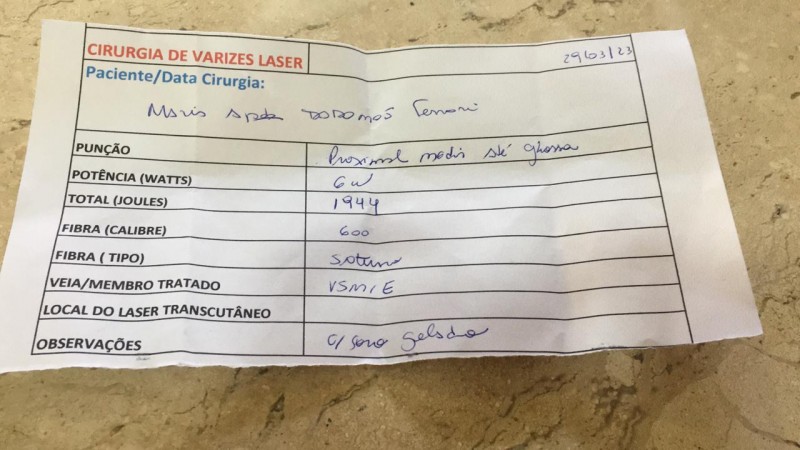 CIRURGIA DE VARIZES LASER 29/03/23
Paciente/Data Cirurgia:
Maria
PUNÇÃO Proximal media até
POTÊNCIA (WATTS) 6w
TOTAL (JOULES) 1944
FIBRA (CALIBRE) 600
FIBRA ( TIPO)
VEIA/MEMBRO TRATADO VSM/E
LOCAL DO LASER TRANSCUTÂNEO
OBSERVAÇÕES c/ soro gelado